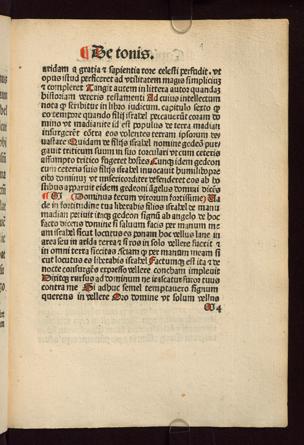 De tonis.
aridam a gratia et sapientia rore celesti perfudit. vt
opus istud perficeret ad vtilitatem magis simplicium
et compleret Tangit autem in littera autor quandaz
historiam veteris testamenti Ad cuius intellectum
nota qd scribitur in libro iudicum. capitulo sexto qd
eo tempore quando filij israhel peccauerunt coram do
mino vt madianite id est populus de terra madian
insurgerent contra eos volentes terram ipsorum de
uastare Quidam de filijs israhel nomine gedeon pur
gauit triticum suum in suo torculari vt cum ceteris
assumpto tritico fugeret hostes Cunqz idem gedeon
cum ceteris suis filijs israhel inuocauit humilibus pre
cibus dominum vt misericorditer defenderet eos ab ho
stibus apparuit eidem gedeoni angelus domini dicens
(Dominus tecum virorum fortissime) Va
de in fortitudine tua liberabis filios israhel de manu
madian petiuit itaqz gedeon signum ab angelo de hoc
facto dicens domine si saluum facis per manum me
am israhel sicut locutus es ponam hoc vellus lane in
area seu in arida terra et si ros in solo vellere fuerit et
in omni terra siccitas sciam qd per manum meam si
cut locutus es liberabis israhel Factumqz est ita et de
nocte consurgens expresso vellere concham impleuit
Dixitqz rursus ad dominum ne irascatur furor tuus
contra me Si adhuc semel temptauero signum
querens in vellere Oro domine vt solum vellus
4